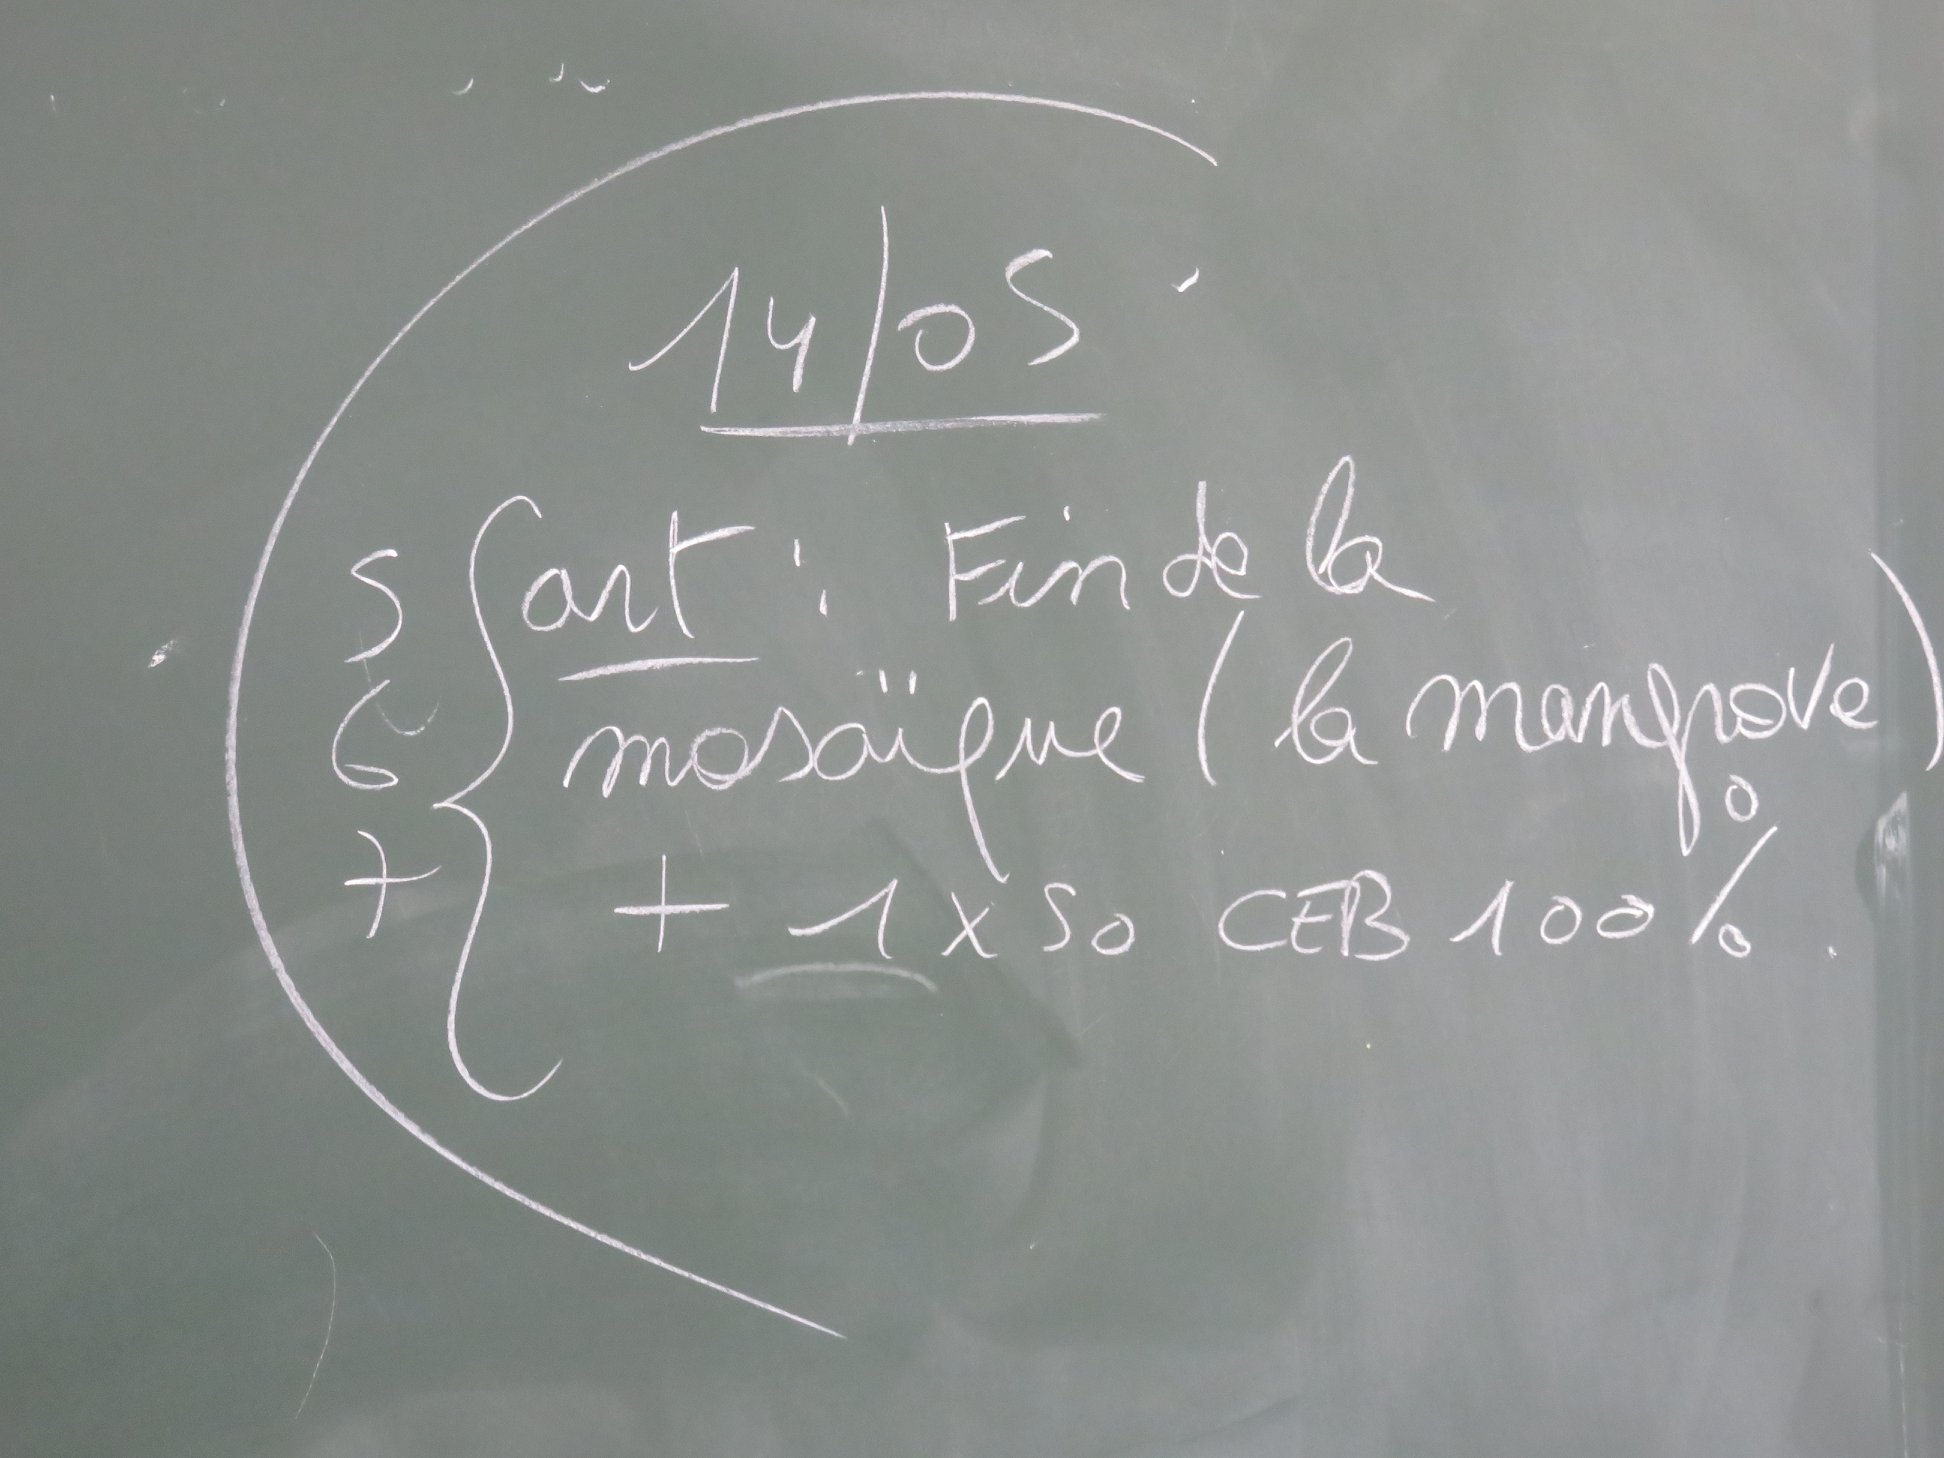 14/05
5 art : Fin de la
6 mosaïque (la mangrove)
7 + 1 x 50 CEB 100%.